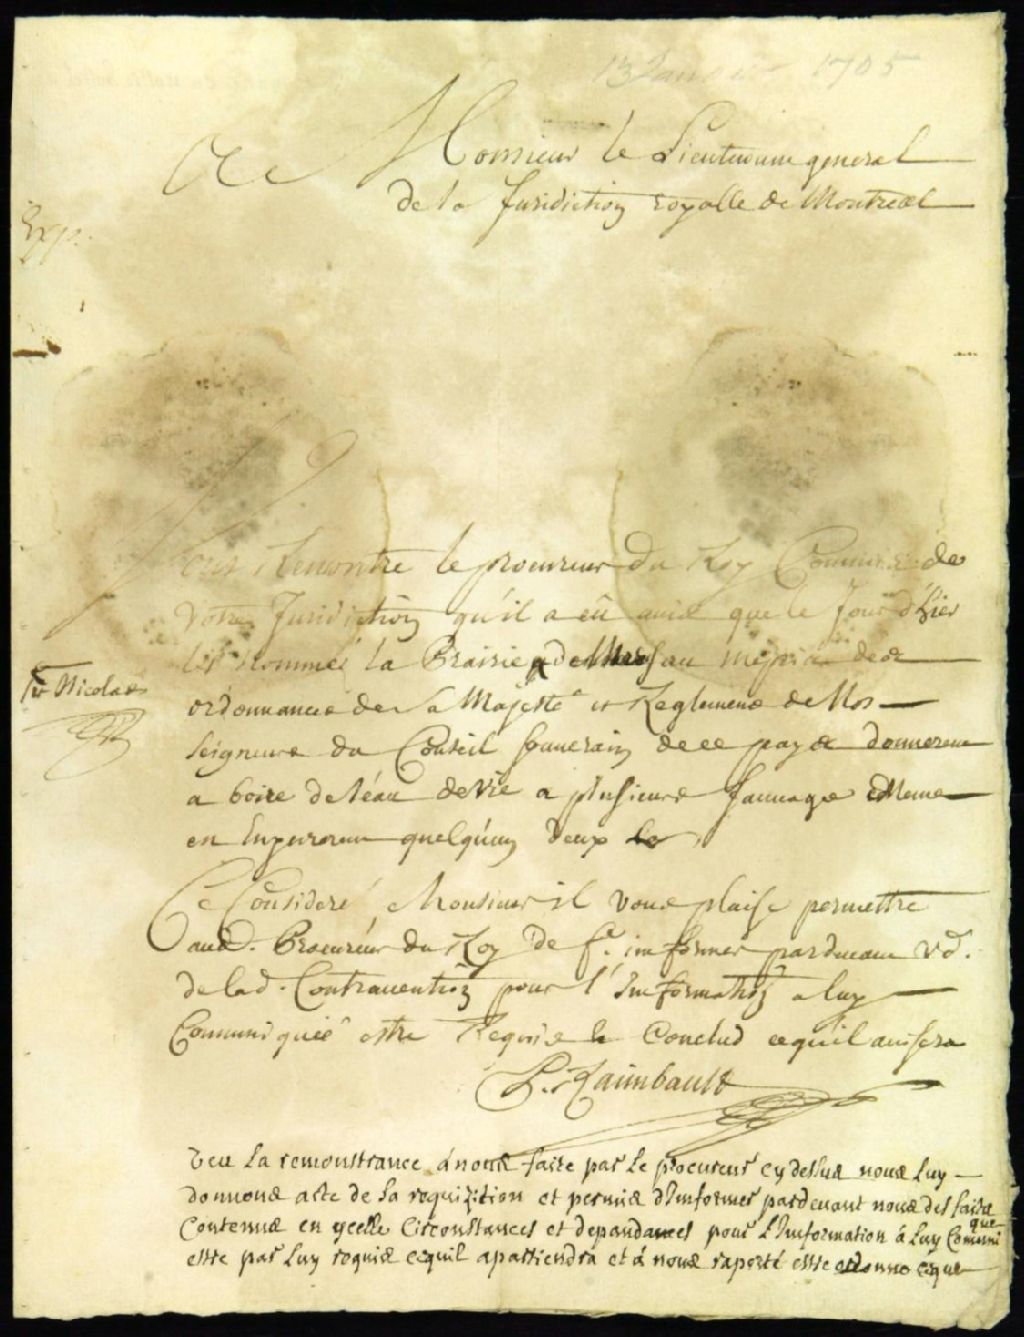 13 Janvier 1705
A Monsieur le Lieutenant general
de la Juridiction royalle de Montreal
Vous Remontre le procureur du Roy Commis de
Votre Juridiction qu'il a eü avis que le Jour d'hier
les nommés La Prairie au mépris des
ordonnances de Sa Majesté et Reglemens de Nos
Seigneurs du Conseil Souverain de ce pays donnerent
a boire de l'eau de vie a plusieurs Sauvages
en Enyvrerent quelqu'uns deux
Nicolas
Ce Consideré Monsieur il vous plaise permettre
aud. Procureur du Roy de fe. informer pardevant vd.
de lad. Contravention pour l'Information a luy
Communiquée estre Requis & Conclud ce qu'il avisera
P. Raimbault
Veu la remonstrance à nous faite par le procureur cy dessus nous luy
donnons acte de sa requizition et permis d'Informer pardevant nous des faits
Contenus en ycelle Circonstances et dependances pour l'Information à luy Communi
que
estre par luy requis cequil apartiendra et à nous raporté estre ordonné ceque